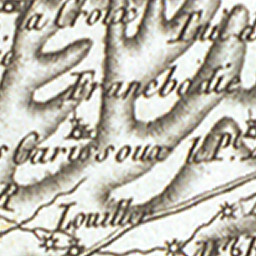 la Croix
Tui d
Francbadie
s Garissoux le Pt.
R
Louiller